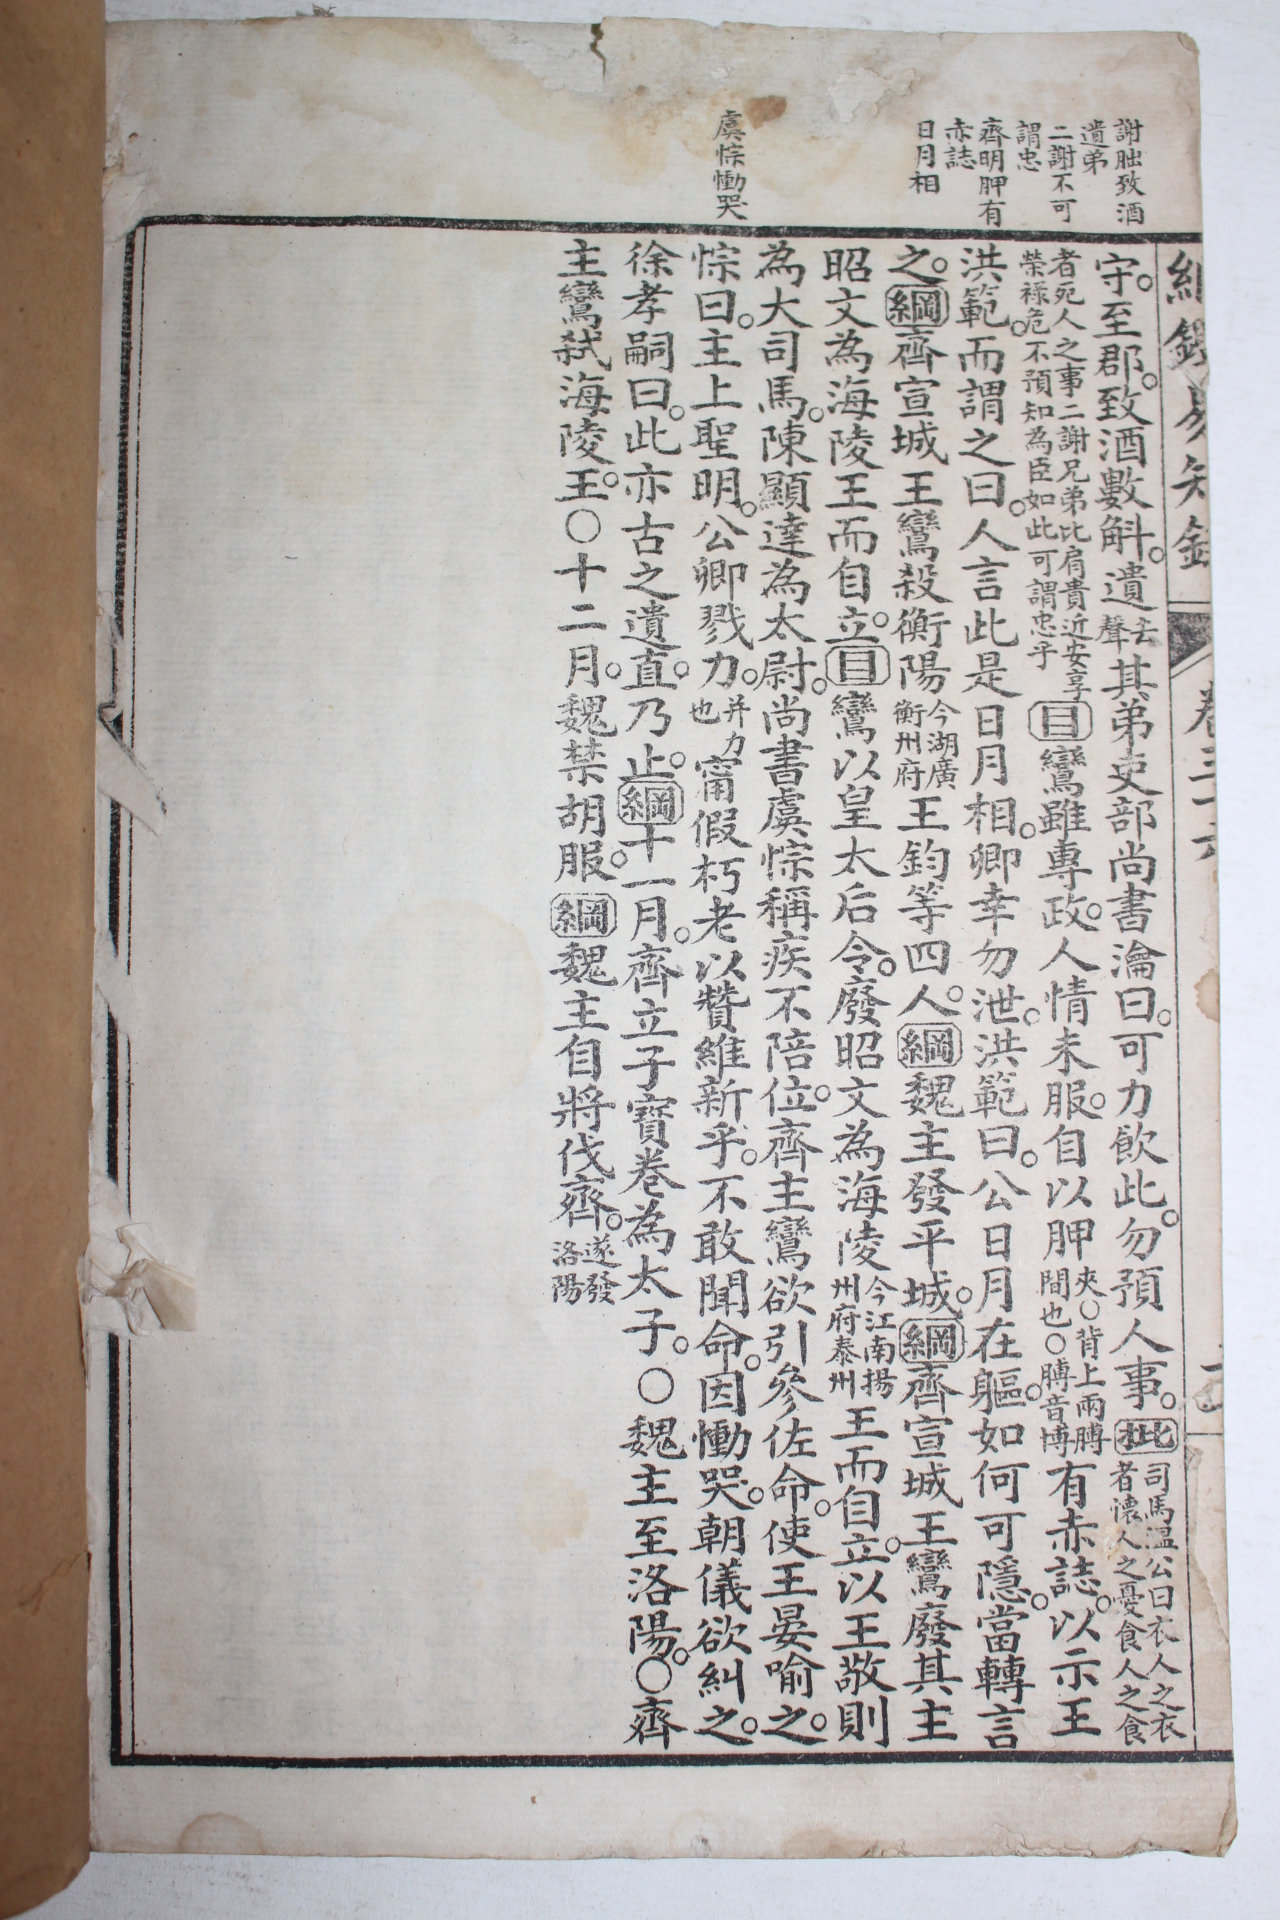 謝朏致酒
遺弟
二謝不可
謂忠
齊明胛有
赤誌
日月相
虞悰慟哭
易知
守。至郡。致酒數斛。遺去聲其弟吏部尚書瀹曰。可力飲此。勿預人事。批司馬溫公曰衣人之衣者懷人之憂食人之食
者死人之事二謝兄弟比肩貴近安享榮祿危不預知為臣如此可謂忠乎目鸞雖專政。人情未服。自以胛夾〇背上兩膊間也〇膊音博有赤誌。以示王
洪範。而謂之曰。人言此是日月相。卿幸勿泄。洪範曰。公日月在軀。如何可隱。當轉言
之。綱齊宣城王鸞殺衡陽今湖廣衡州府王鈞等四人。綱魏主發平城。綱齊宣城王鸞廢其主
昭文為海陵王而自立。目鸞以皇太后令。廢昭文為海陵今江南揚州府泰州王而自立。以王敬則
為大司馬。陳顯達為太尉。尚書虞悰稱疾不陪位。齊主鸞欲引參佐命。使王晏喻之。
悰曰。主上聖明。公卿戮力。并力也甯假朽老以贊維新乎。不敢聞命。因慟哭。朝儀欲糾之。
徐孝嗣曰。此亦古之遺直。乃止。綱十一月。齊立子寶卷為太子。〇魏主至洛陽。〇齊
主鸞弒海陵王。〇十二月。魏禁胡服。綱魏主自將伐齊。遂發洛陽